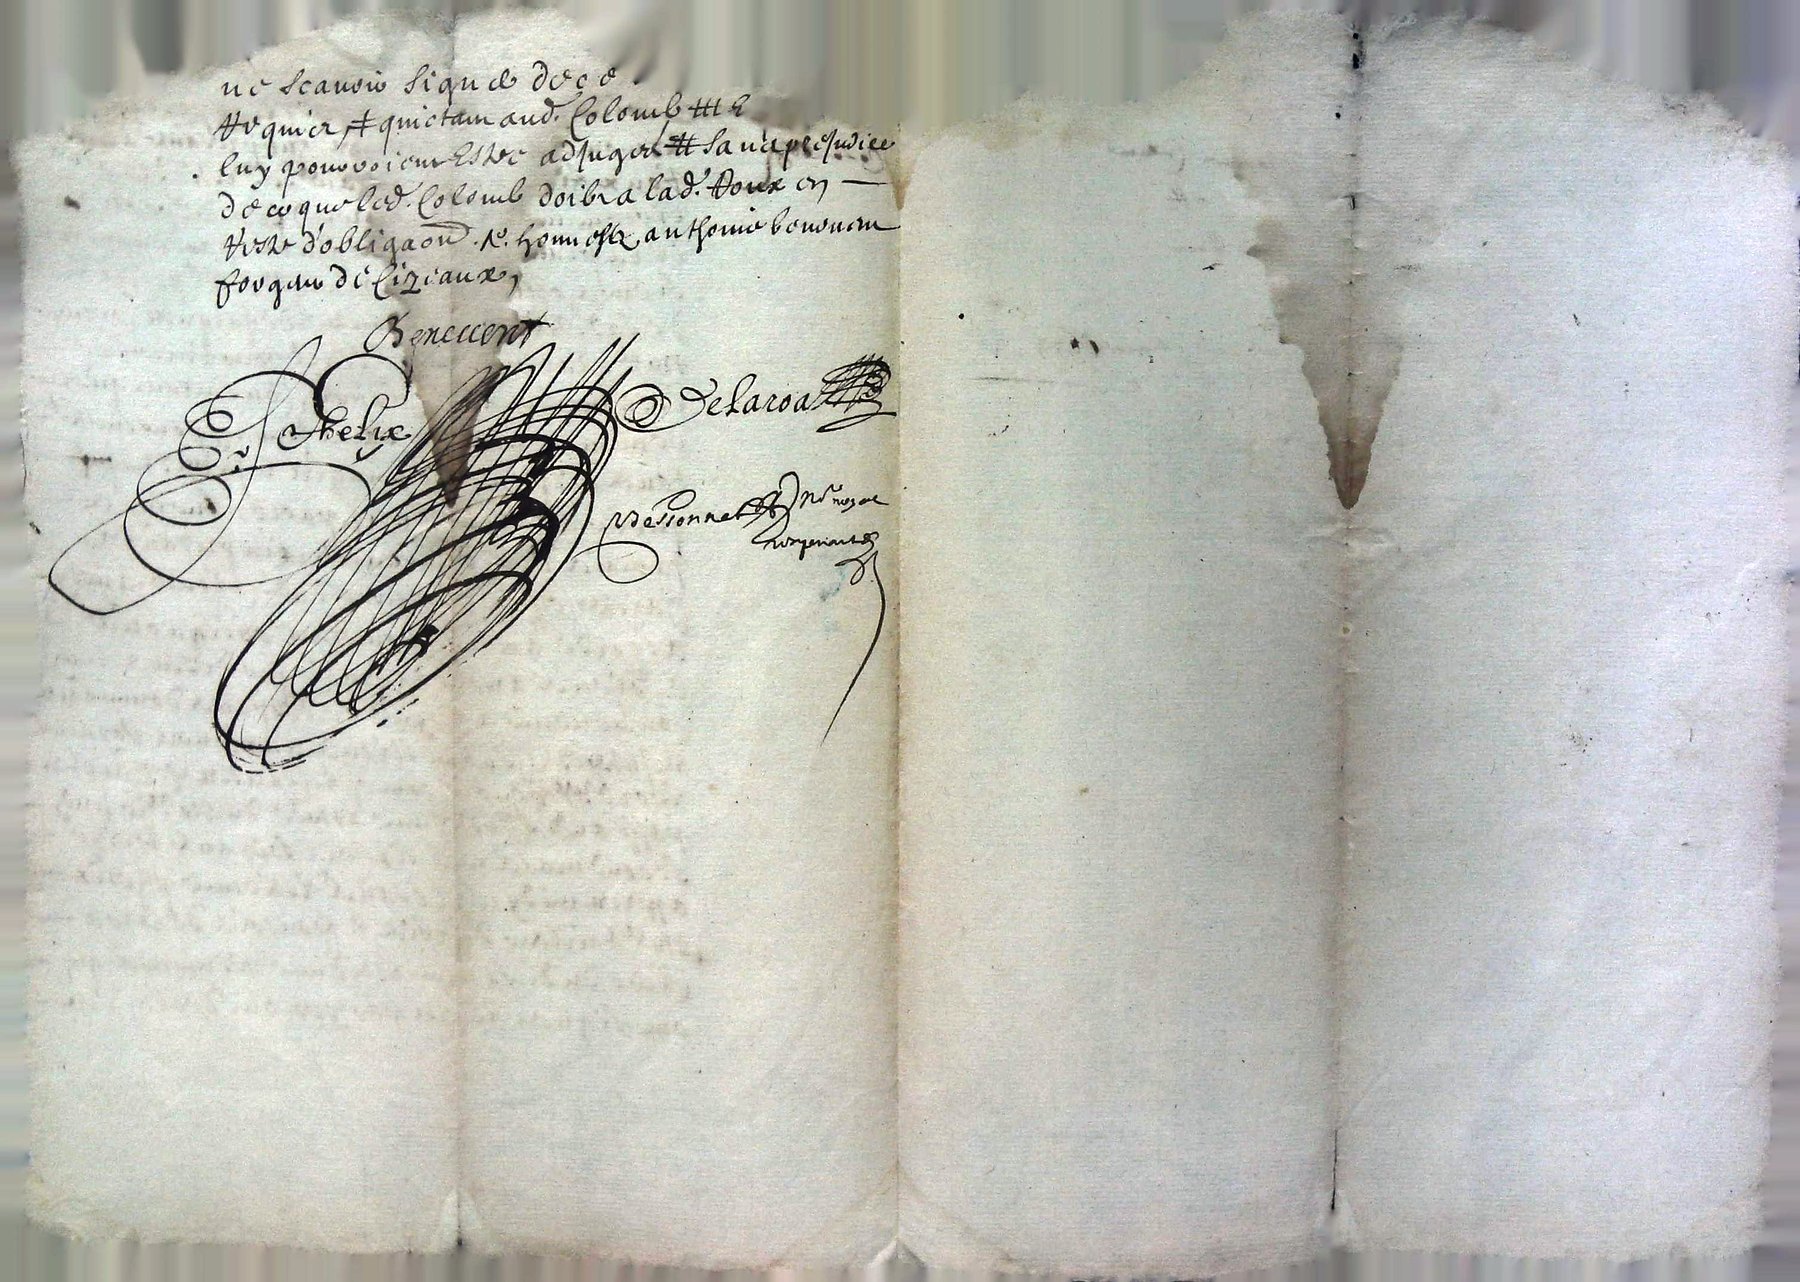 ne scavoir signé de ce
requier # quictam aud. Colomb #
luy pourroient Estre adjuger # sans prejudice
de ce que led. Colomb doibt a lad. Roux en —
reste d'obligaon Re. honneste anthonie benevent
forgeur de Cizeaux,
Benevent
Thelix
Delaroa
Dessonnet Nre royal